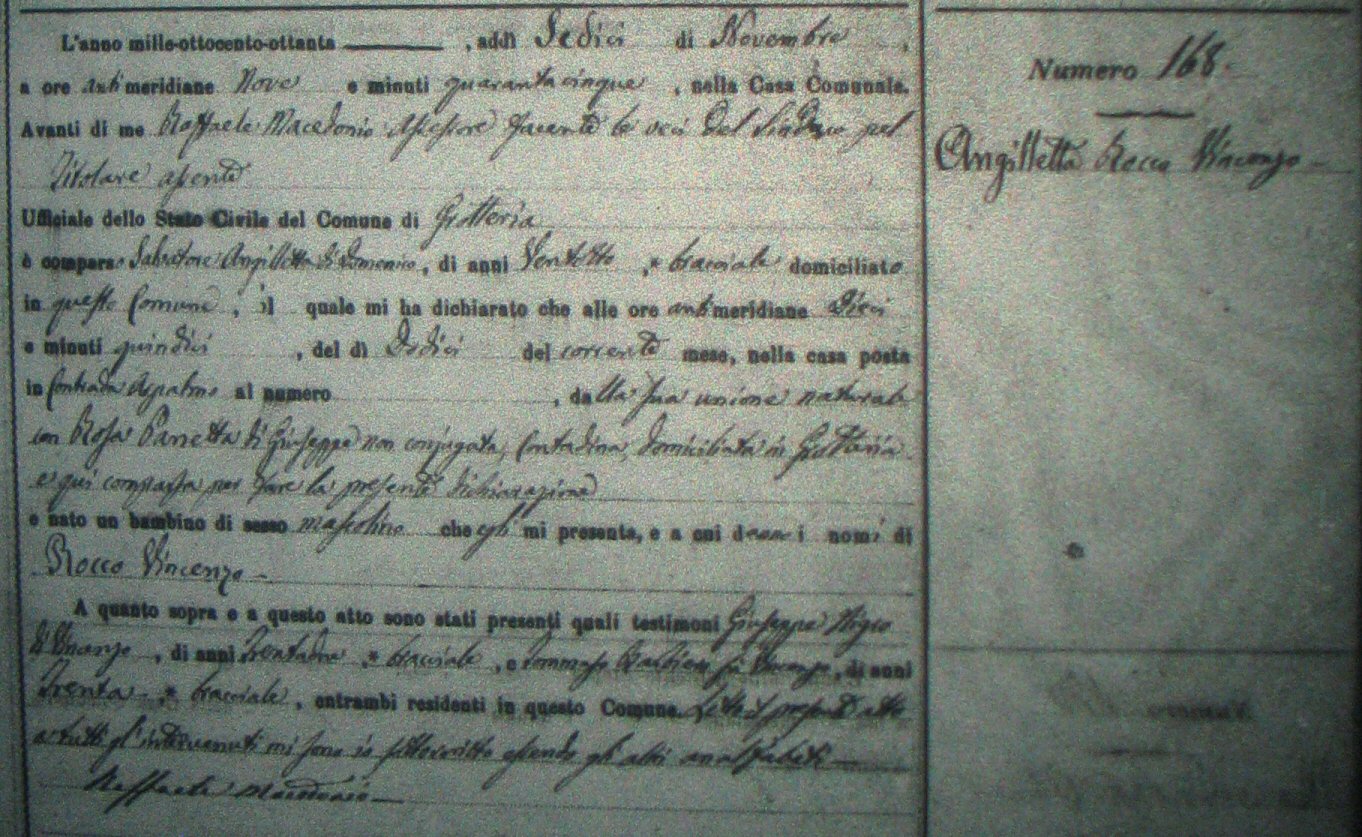 L'anno mille-ottocento-ottanta , addì Sedici di Novembre ,
a ore antimeridiane Nove e minuti quarantacinque , nella Casa Comunale.
Avanti di me Raffaele Macedonio Assessore facente le veci del Sindaco pel
Titolare assente
Uffiziale dello Stato Civile del Comune di Grotteria
è comparso Salvatore Angilletta di Domenico, di anni Ventotto , bracciale domiciliato
in questo Comune , il quale mi ha dichiarato che alle ore antimeridiane Dieci
e minuti quindici , del dì Dodici del corrente mese, nella casa posta
in Contrada al numero , dalla sua unione naturale
con Rosa Panetta di Giuseppe non conjugata, Contadina, domiciliata in Grotteria
e qui comparsa per fare la presente dichiarazione
è nato un bambino di sesso mascolino che egli mi presenta, e a cui danno i nomi di
Rocco Vincenzo
A quanto sopra e a questo atto sono stati presenti quali testimoni Giuseppe
di Vincenzo , di anni , bracciale , e Tommaso Barbiero fu Vincenzo, di anni
Trenta , bracciale , entrambi residenti in questo Comune. Letto il presente atto
a tutti gl'intervenuti mi sono io sottoscritto essendo gli altri analfabeti
Raffaele Macedonio
Numero 168.
Angilletta Rocco Vincenzo